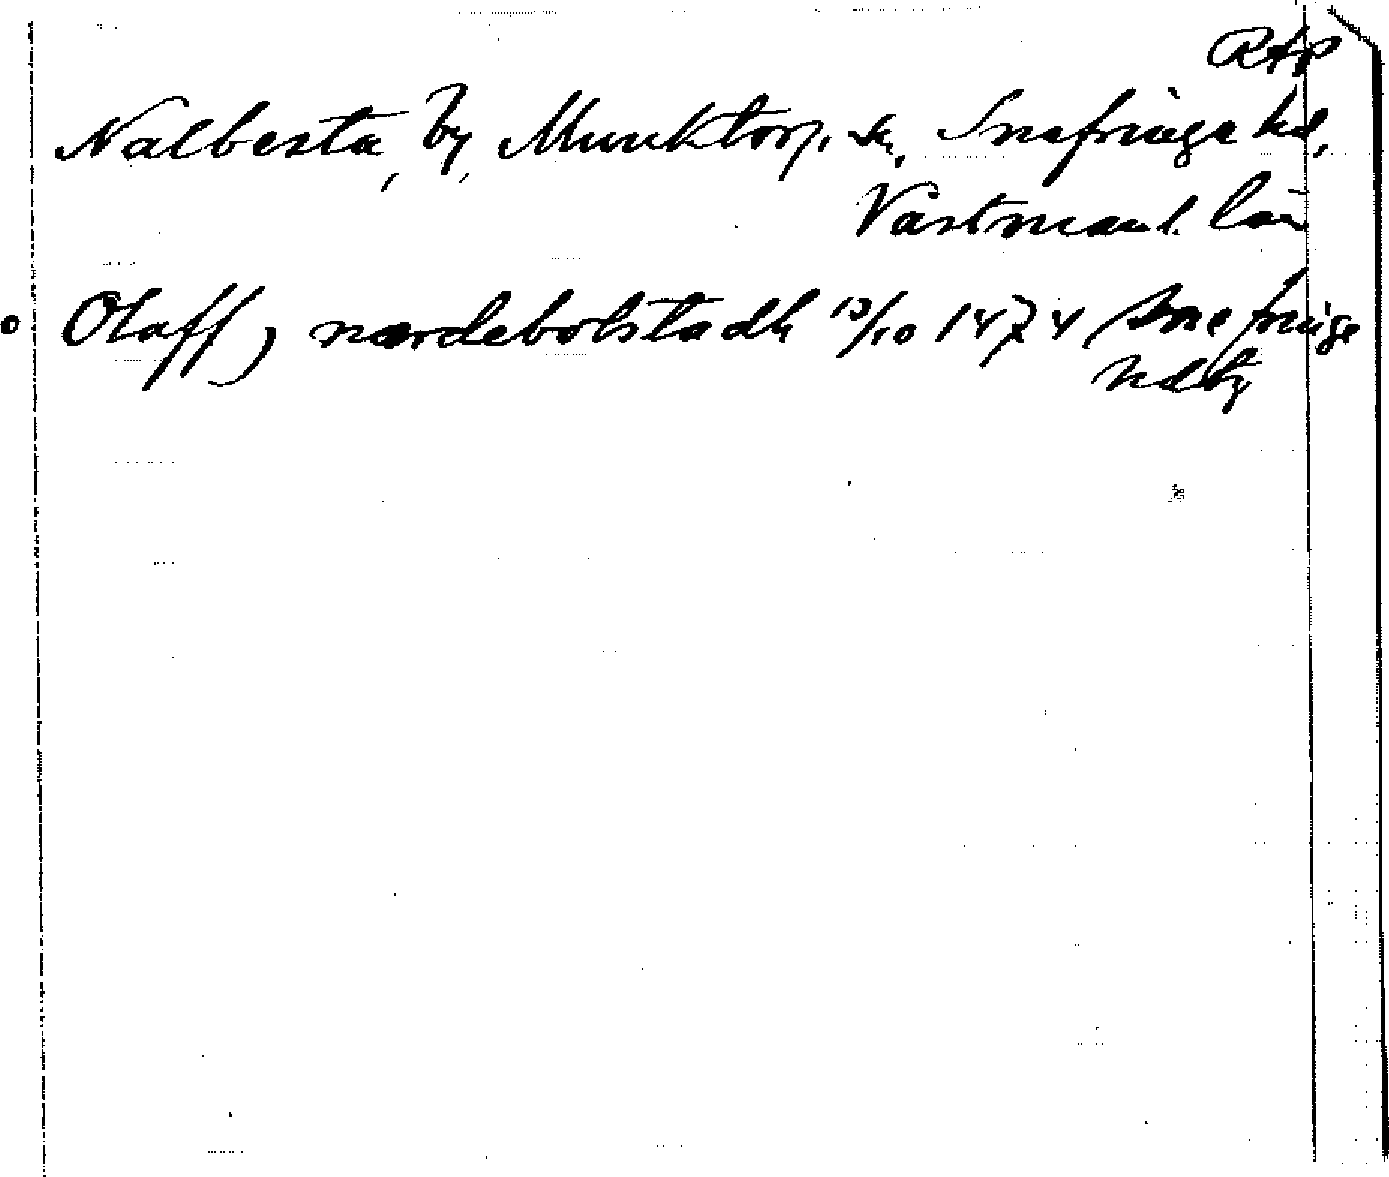 RAP
Nalbesta, by, Munktorp, sn, Snefringe hd,
Västmanl. län
Olaff, nærdebolstadh 13/10 1474 Snefringe
hdtg